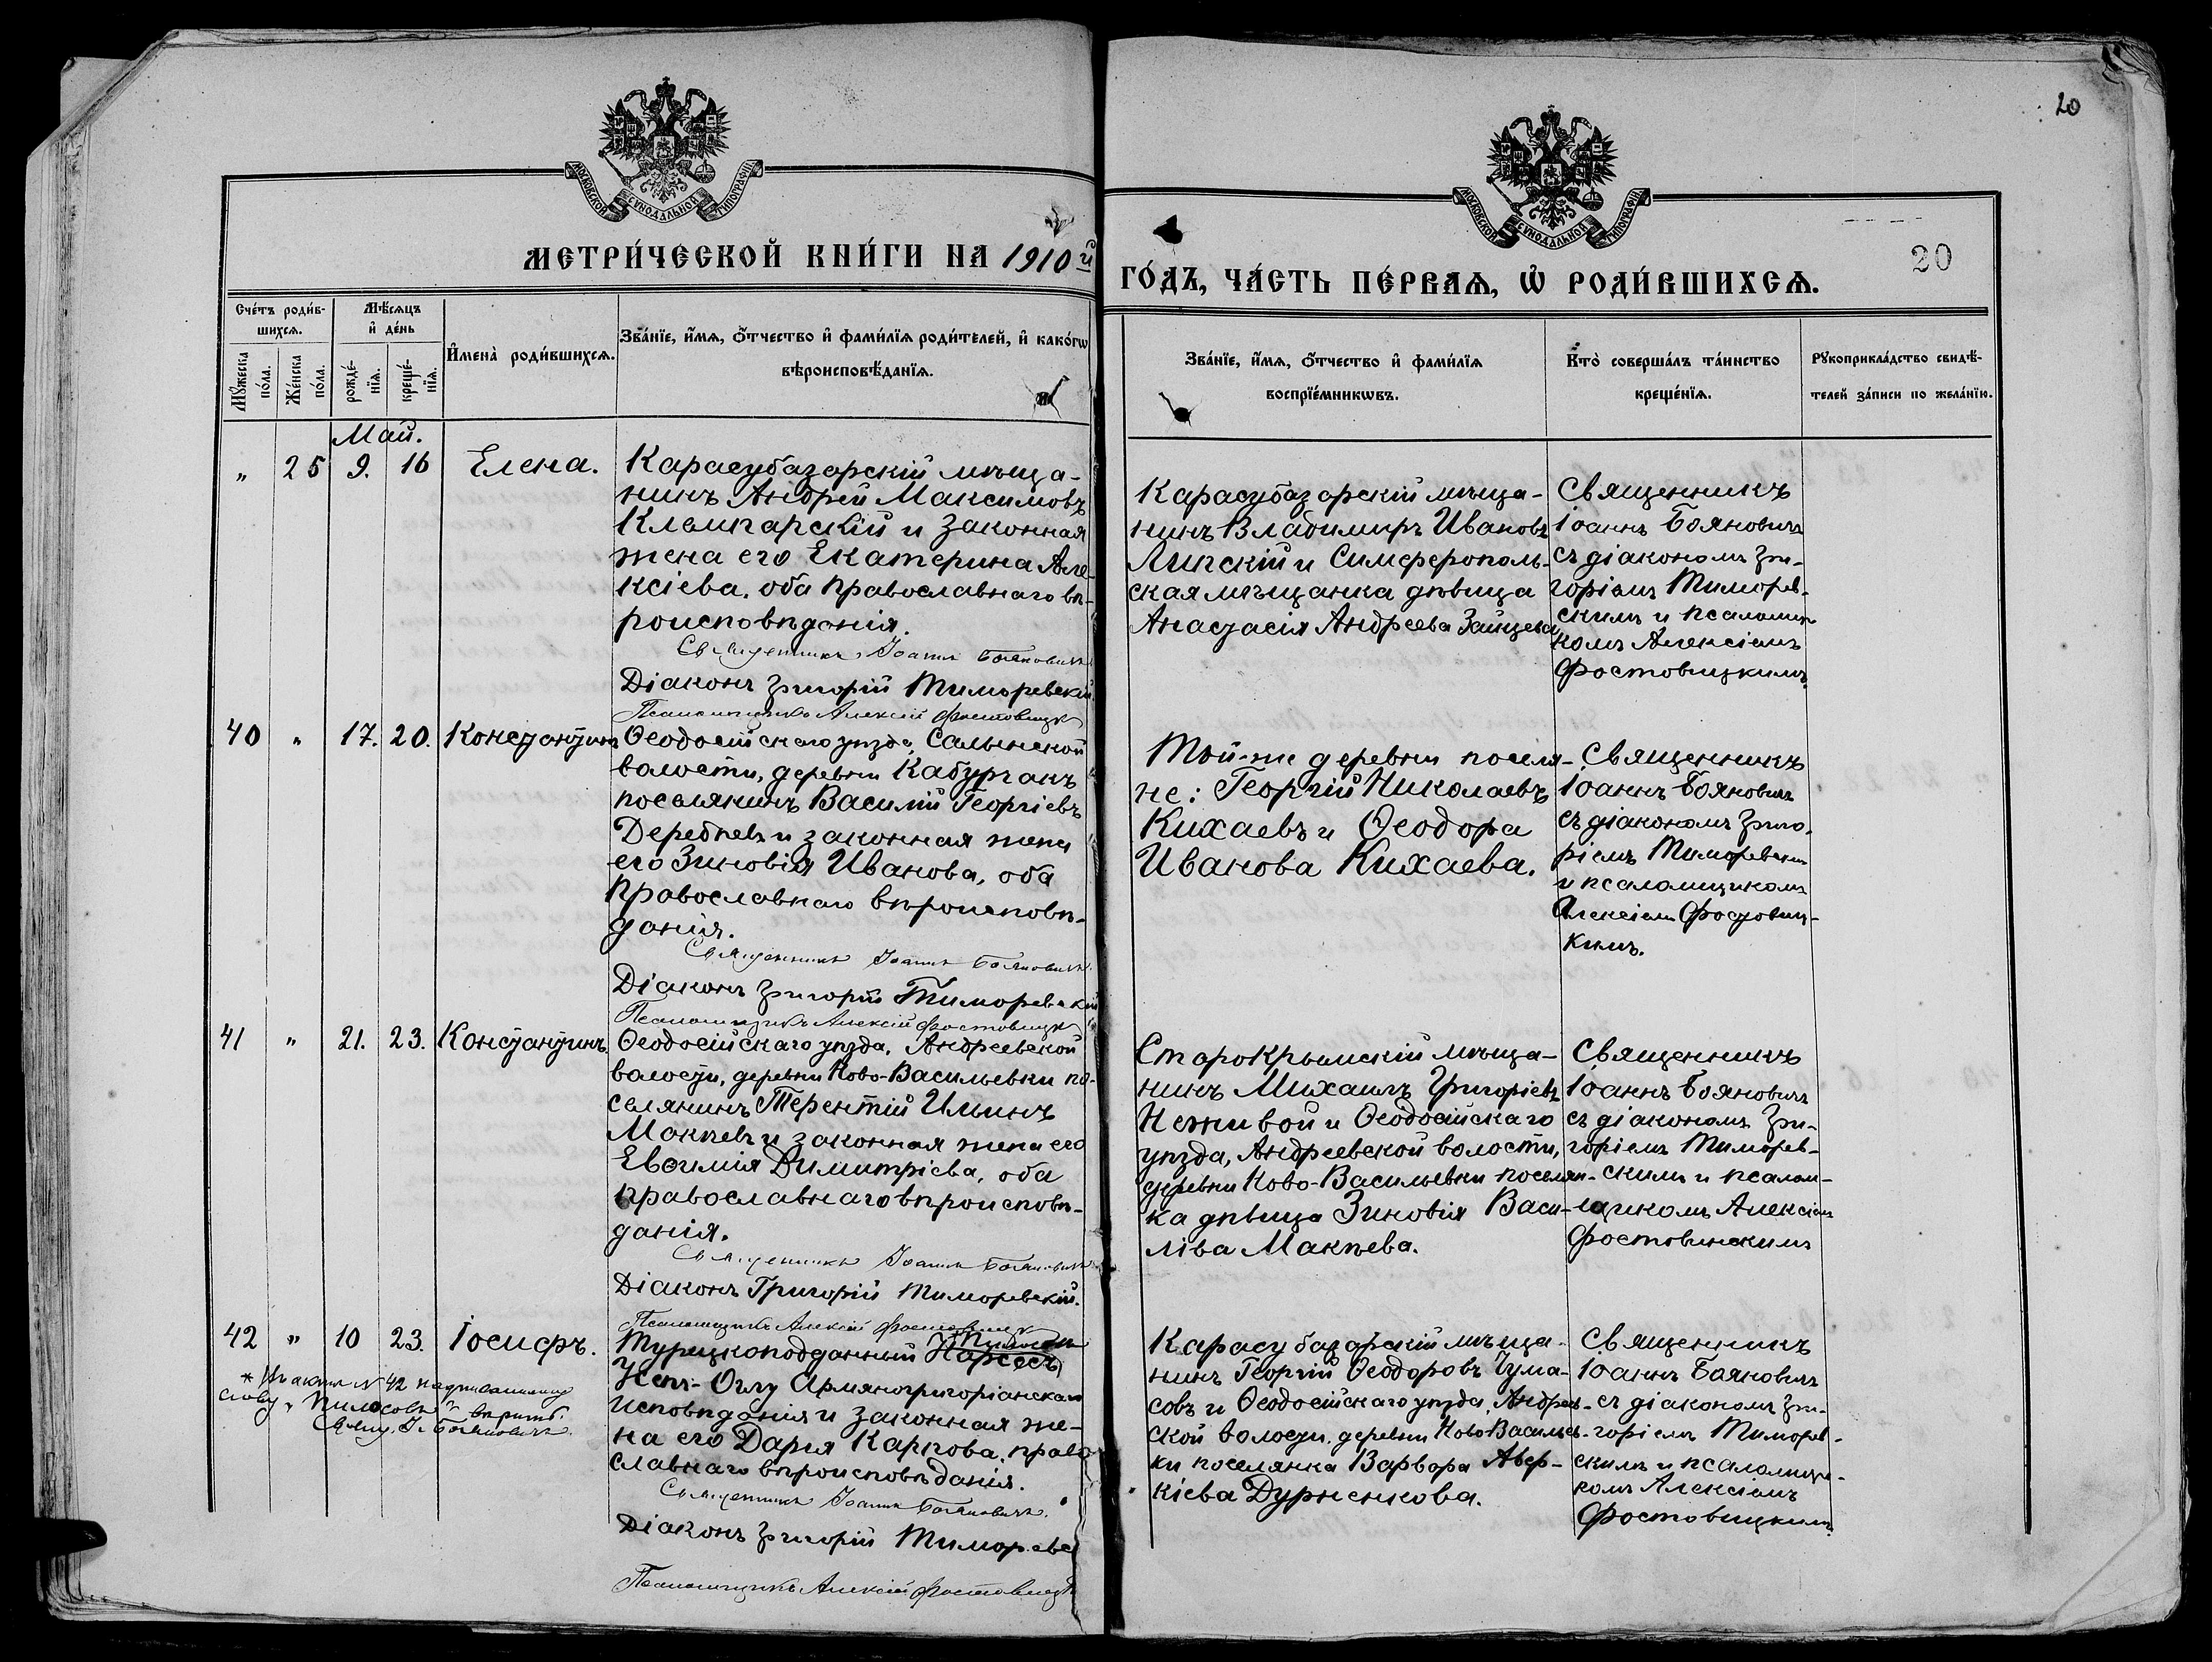 20
МОСКОВСКОЙ СѴНОДАЛЬНОЙ ТИПОГРАФІИ
МОСКОВСКОЙ СѴНОДАЛЬНОЙ ТИПОГРАФІИ
МЕТРИ́ЧЕСКОЙ КНИ́ГИ НА 1910й
ГО́ДЪ, ЧА́СТЬ ПЕ́РВАѦ, Ѡ҆ РОДИ́ВШИХСѦ.
20
Сче́тъ роди́в-
шихсѧ.
Мꙋ́жеска по́ла.
Же́нска по́ла.
Мѣ́сѧцъ
и҆ де́нь
рожде́-
нїѧ.
креще́-
нїѧ.
И҆мена̀ роди́вшихсѧ.
Зва́нїе, и҆́мѧ, ѻ҆́тчество и҆ фами́лїѧ роди́телей, и҆ како́гѡ
вѣроисповѣ́данїѧ.
Зва́нїе, и҆́мѧ, ѻ҆́тчество и҆ фами́лїѧ
воспрїе́мникѡвъ.
Кто̀ соверша́лъ та́инство
креще́нїѧ.
Рꙋкоприкла́дство свидѣ́-
телей за́писи по жела́нїю.
Май.
„ 25 9. 16 Елена.
Карасубазарскій мѣща-
нинъ Андрей Максимовъ
и законная
жена его Екатерина Але-
ксіева, оба православнаго вѣ-
роисповѣданія.
Священникъ Іоаннъ Бояновичъ
Діаконъ Григорій Тиморевскій
Псаломщикъ Алексій Фостовицк
Карасубазарскій мѣща-
нинъ Владимиръ Ивановъ
Липскій и Симферополь-
ская мѣщанка дѣвица
Анастасія Андреева Зайцева
Священникъ
Іоаннъ Бояновичъ
съ діакономъ Гри-
горіемъ Тиморев-
скимъ и псаломщи-
комъ Алексіемъ
Фостовицкимъ.
40 „ 17. 20. Константинъ
Ѳеодосійскаго уѣзда, Салынской
волости, деревни Кабурганъ
поселянинъ Василій Георгіевъ
и законная жена
его Зиновія Иванова, оба
православнаго вѣроисповѣ-
данія.
Священникъ Іоаннъ Бояновичъ.
Діаконъ Григорій Тиморевскій
Псаломщикъ Алексій Фостовицк
Той-же деревни поселя-
не: Георгій Николаевъ
Кихаевъ и Ѳеодора
Иванова Кихаева.
Священникъ
Іоаннъ Бояновичъ
съ діакономъ Григо-
ріемъ Тиморевскимъ
и псаломщикомъ
Алексіемъ Фостовиц-
кимъ.
41 „ 21. 23. Константинъ.
Ѳеодосійскаго уѣзда, Андреевской
волости, деревни Ново-Васильевки по-
селянинъ Терентій Ильинъ
Мокѣевъ и законная жена его
Евѳимія Димитріева, оба
православнаго вѣроисповѣ-
данія.
Священникъ Іоаннъ Бояновичъ
Діаконъ Григорій Тиморевскій.
Псаломщикъ Алексій Фостовицк
Старокрымскій мѣща-
нинъ Михаилъ Григоріевъ
Неживой и Ѳеодосійскаго
уѣзда, Андреевской волости,
деревни Ново-Васильевки поселян-
ка дѣвица Зиновія Васи-
ліва Макѣева.
Священникъ
Іоаннъ Бояновичъ
съ діакономъ Гри-
горіемъ Тиморев-
скимъ и псалом-
щикомъ Алексіемъ
Фостовицкимъ
42 „ 10 23. Іосифъ.
* Въ актѣ N 42 надписанному
слову „Пилосовъ“ вѣрить.
Свящ. І. Бояновичъ.
Пилосовъ
Турецкоподданный Нарсесъ
Оглу Армяногригоріанскаго
исповѣданія и законная же-
на его Дарія Карпова, право
славнаго вѣроисповѣданія.
Священникъ Іоаннъ Бояновичъ.
Діаконъ Григорій Тиморевс
Псаломщикъ Алексій Фостовицк
Карасубазарскій мѣща-
нинъ Георгій Ѳеодоровъ Чума-
совъ и Ѳеодосійскаго уѣзда, Андреев-
ской волости, деревни Ново Васильев-
ки поселянка Варвара Авер-
кіева Дурненкова.
Священникъ
Іоаннъ Бояновичъ
съ діакономъ Гри-
горіемъ Тиморев-
скимъ и псаломщи-
комъ Алексіемъ
Фостовицкимъ.